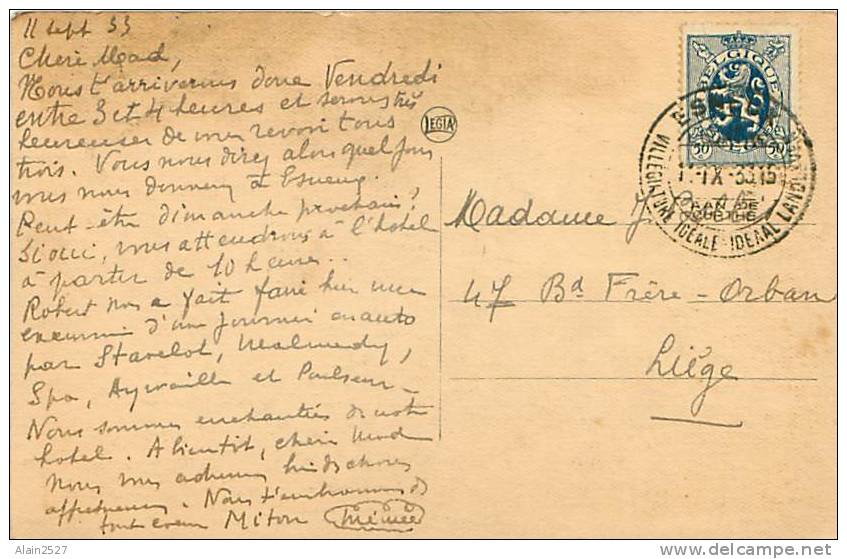 11 sept 33
Chère Mad,
Nous t'arriverons donc Vendredi
entre 3 et 4 heures et serons très
heureuses de vous revoir tous
trois. Vous nous direz alors quel jour
vous nous donnerez à Esneux.
Peut-être dimanche prochain?
Si oui, vous attendrons à l'hôtel
à partir de 10 heures..
Robert nous a fait faire hier une
excursion d'une journée en auto
par Stavelot, Malmedy,
Spa, Aywaille et Poulseur -
Nous sommes enchantées de notre
hotel. A bientôt, chère Mad
nous vous
affectueuses. Nous t'embrassons de
tout coeur Miton Mémée
LEGIA
BELGIQUE
BELGIE
50 50
ESNEUX
11-IX-33 15
VILLEGIATURE IDÉALE - IDEAAL LANDVERBLIJF
Madame J
47 Bd Frère-Orban
Liège
© Alain2527
http://www.delcampe.net